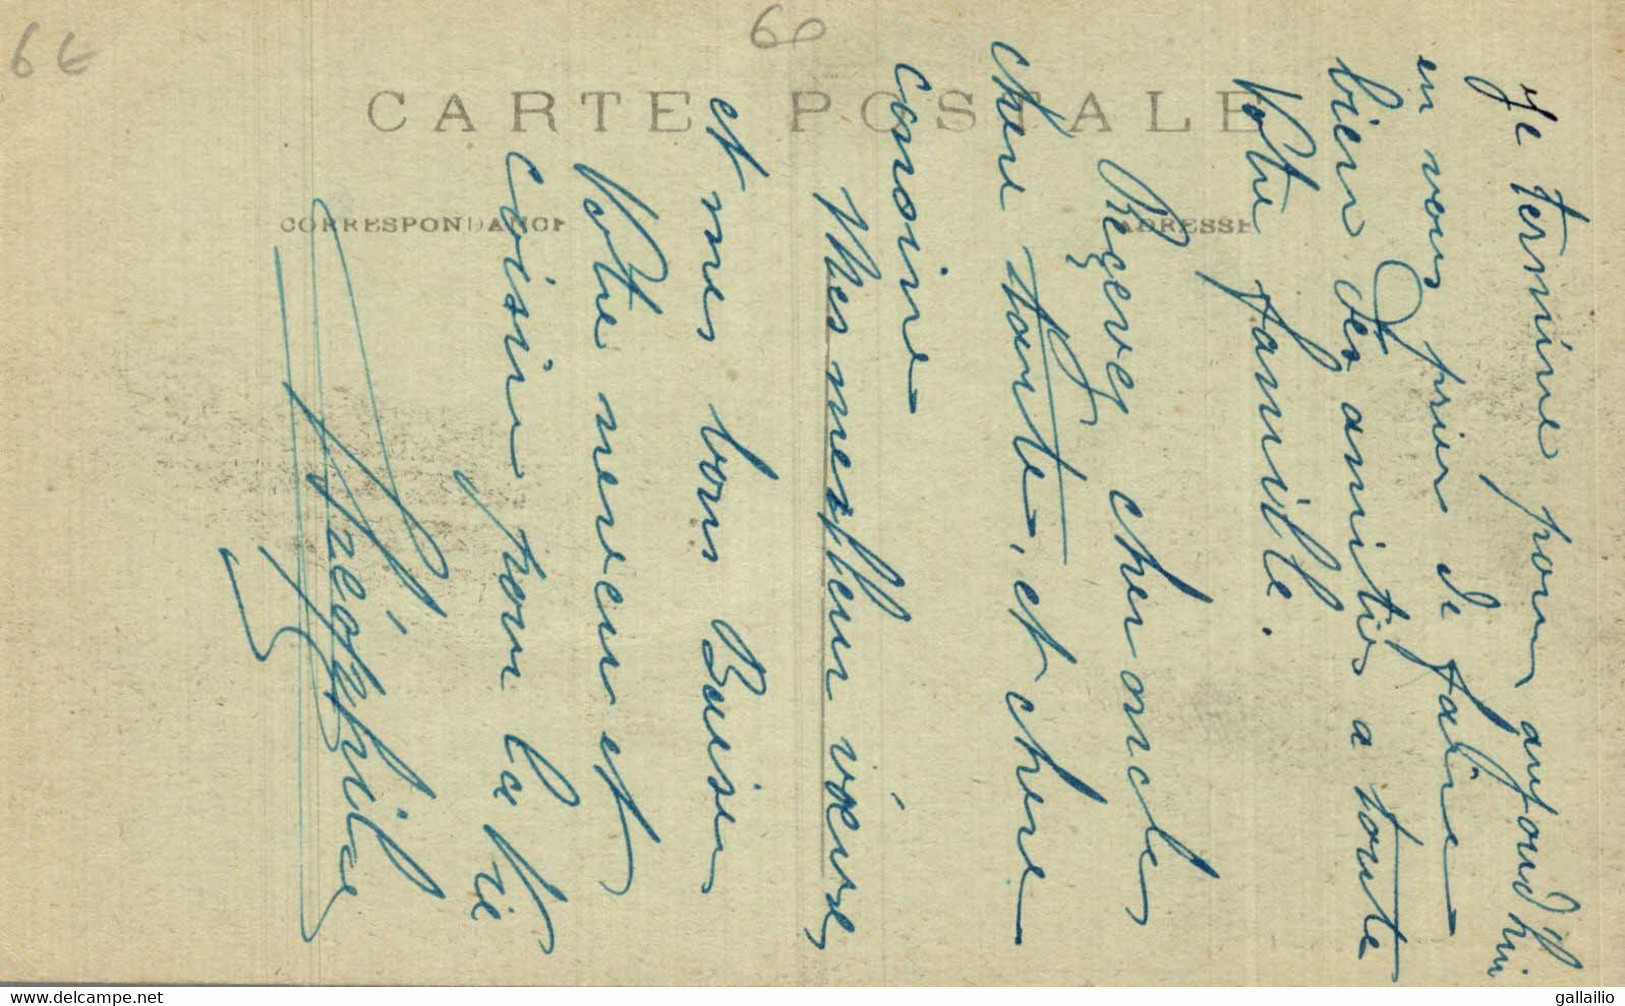 6 €
60
CARTE POSTALE
CORRESPONDANCE
ADRESSE
Je termine pour aujourd'hui
en vous prier de faline
bien des amitiés a toute
Votre famille.
Reçevez cher oncle
chere tante, et chere
cousine
Mes meilleur vœux
et mes bons Baiser
Votre neveu et
cousin pour la vie
Théophile
gallailio
www.delcampe.net